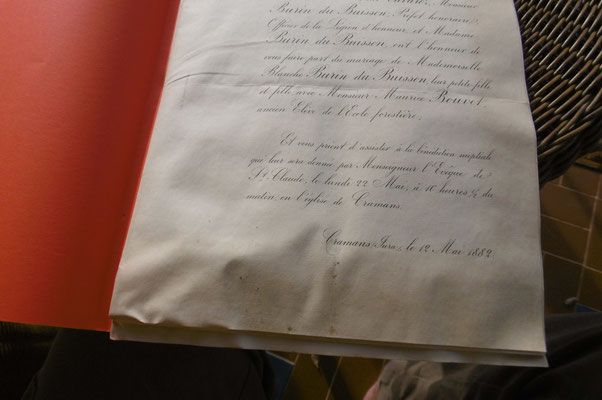 Monsieur
Burin du Buisson, Préfet honoraire,
Officier de la Légion d'honneur, et Madame
Burin du Buisson, ont l'honneur de
vous faire part du mariage de Mademoiselle
Blanche Burin du Buisson, leur petite fille
et fille avec Monsieur Maurice Bouvet
ancien Elève de l'Ecole forestière.
Et vous prient d'assister à la bénédiction nuptiale
qui leur sera donnée par Monseigneur l'Evêque de
St Claude, le lundi 22 Mai, à 10 heures ½ du
matin, en l'église de Cramans.
Cramans Jura, le 12 Mai 1882.